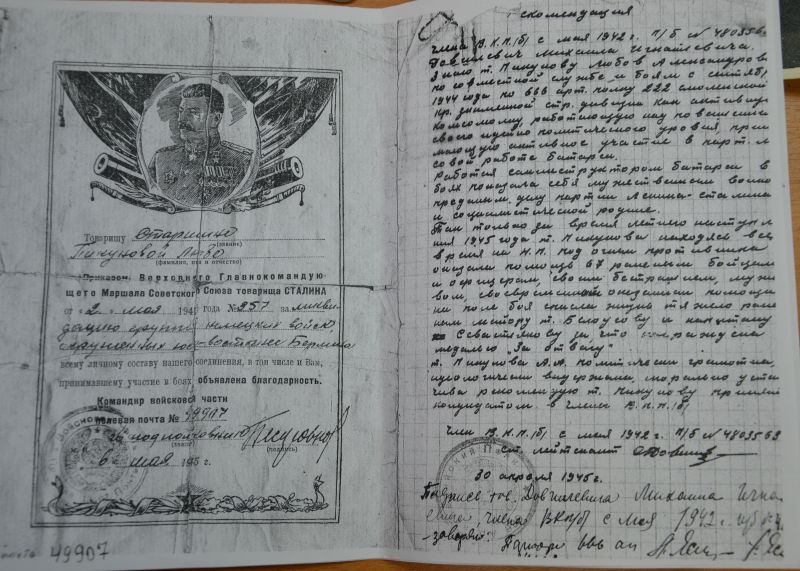 Товарищу Старшине
(звание)
Пикуновой Любо
(фамилия, имя и отчество)
Приказом Верховного Главнокомандую
щего Маршала Советского Союза товарища СТАЛИНА
от 2 мая 194 года № 357 за ликви
дацию группы немецких войск,
окруженных юго-восточнее Берлина
всему личному составу нашего соединения, в том числе и Вам,
принимавшему участие в боях, объявлена благодарность.
Командир войсковой части
полевая почта № 49907
подполковник
(звание) (подпись)
6 мая 1945 г.
49907
Рекомендация
члена В.К.П./б/ с мая 1942 г. П/б N 480356
Довгилевич Михаила Игнатьевича.
Знаю т. Пикунову Любовь Александров
по совместной службе и боям с сентяб
1944 года по 666 арт. полку 222 смоленской
кр. знаменной стр. дивизии как активную
комсомолку, работающую над повышени
своего идейно политического уровня, при
мающую активное участие в парт. м
совой работе батареи.
Работая санинструктором батареи в
боях показала себя мужественным воино
преданным делу партии Ленина-Сталина
и социалистической родине.
Так только за время летнего наступл
ния 1945 года т. Пикунова находясь все
время на Н.П. под огнём противника
оказала помощь раненым бойцам
и офицерам, своим бесстрашием, муж
вом, своевременным оказанием помощи
на поле боя спасли жизнь тяжело ране
ным майору т. Белоусову и капитану
Севастьянову за что награждена
медалью "За отвагу"
т. Пикунова Л.А. политически грамотна,
идеологически выдержана, морально устой
чива рекомендую т. Пикунову принять
кандидатом в члены В.К.П./б/
член В.К.П./б/ с мая 1942 г. П/б N 4803563
ст. лейтенант
30 апреля 1945 г.
Подпись тов. Довгилевича Михаила Игна
евича, члена ВКП/б с мая 1942 г.
заверяю: Парторг 666 ап